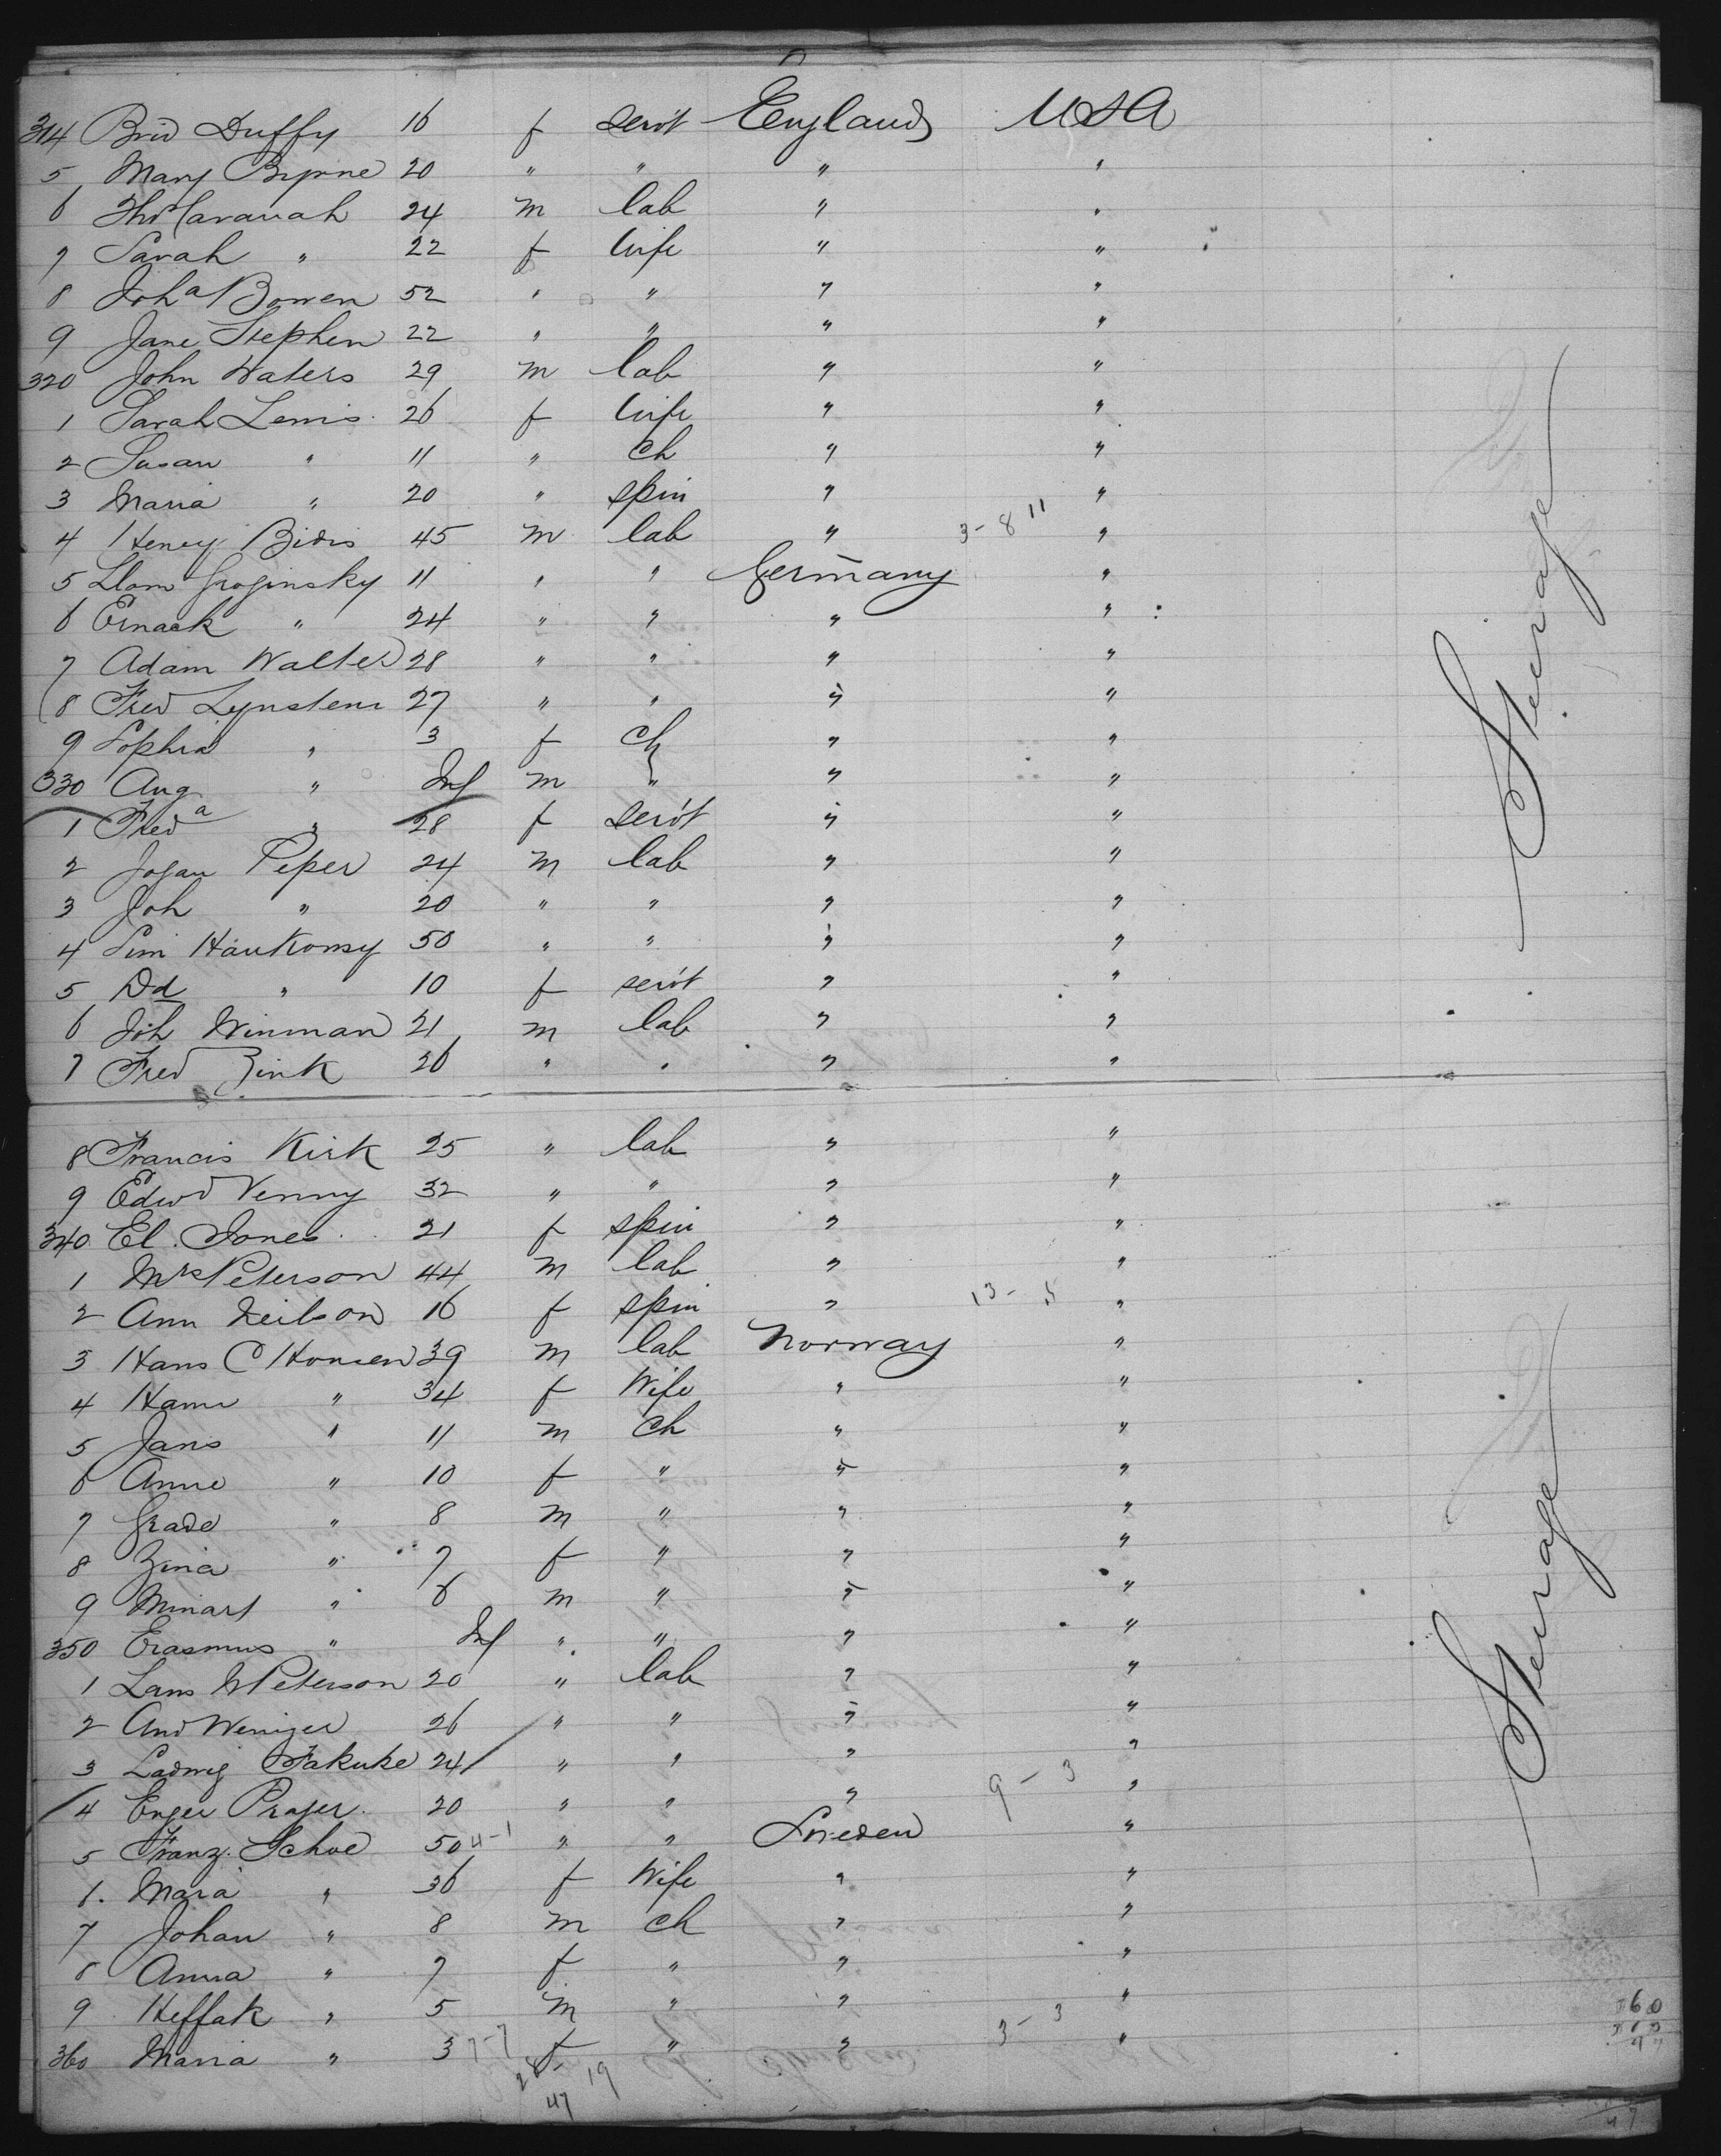 314 Brid Duffy 16 f serv't England USA
5 Mary Byrne 20 " " " "
6 Thos Cavanah 24 m lab " "
7 Sarah " 22 f wife " "
8 Joha Bowen 52 " " " "
9 Jane Stephen 22 " " " "
320 John Waters 29 m lab " "
1 Sarah Lewis 26 f wife " "
2 Susan " 11 " ch " "
3 Maria " 20 " spin " "
4 Heney Bidis 45 m lab " 3-8 11 "
5 Llom Groginsky 11 " " Germany "
6 Ernack " 24 " " " "
7 Adam Walter 28 " " " "
8 Fred Lynstem 27 " " " "
9 Sophia " 3 f ch " "
330 Aug " Inf m " " "
1 Freda " 28 f serv't " "
2 Jogan Peper 24 m lab " "
3 Joh " 20 " " " "
4 Sim Haukomsy 50 " " " "
5 Dd " 10 f serv't " "
6 Joh Winman 21 m lab " "
7 Fred Zink 26 " " " "
8 Francis Kirk 25 " lab " "
9 Edwd Venny 32 " " " "
340 El. Jones 21 f spin " "
1 Mrk Peterson 44 m lab " "
2 Ann Neilson 16 f spin " 13- "
3 Hans C Honsen 39 m lab Norway "
4 Hanne " 34 f Wife " "
5 Jans " 11 m ch " "
6 Anne " 10 f " " "
7 Grade " 8 m " " "
8 Zina " 7 f " " "
9 Minart " 6 m " " "
350 Erasmus " Inf " " " "
1 Lans M Peterson 20 " lab " "
2 And Weniger 26 " " " "
3 Ladwig Fakuke 24 " " " "
4 Enger Prager 20 " " " 9-3 "
5 Franz Schoe 50 4-1 " " Sweden "
6. Mara " 36 f Wife " "
7 Johan " 8 m ch " "
8 Anna " 7 f " " "
9 Heffak " 5 m " " "
360 Maria " 3 7-7 f " " 3-3 "
28 19
47
Steerage
Steerage